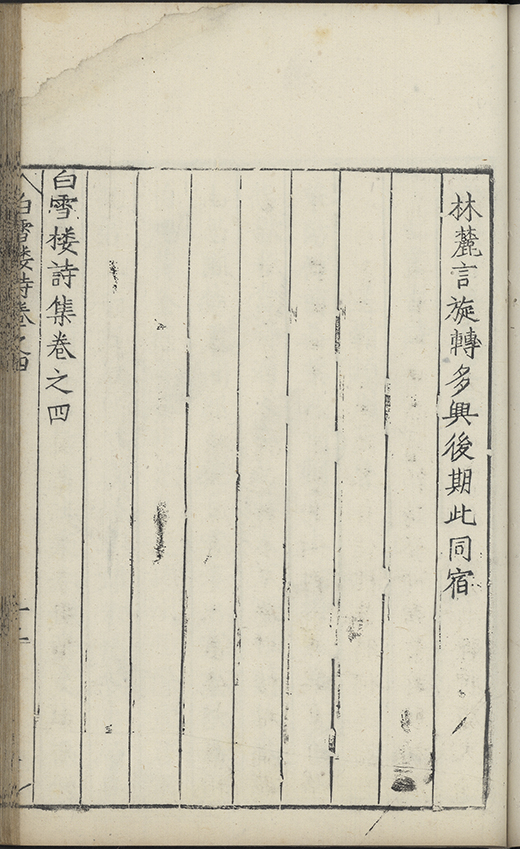 林麓言旋轉多興後期此同宿
白雪楼詩集卷之四
白雪楼詩卷之四